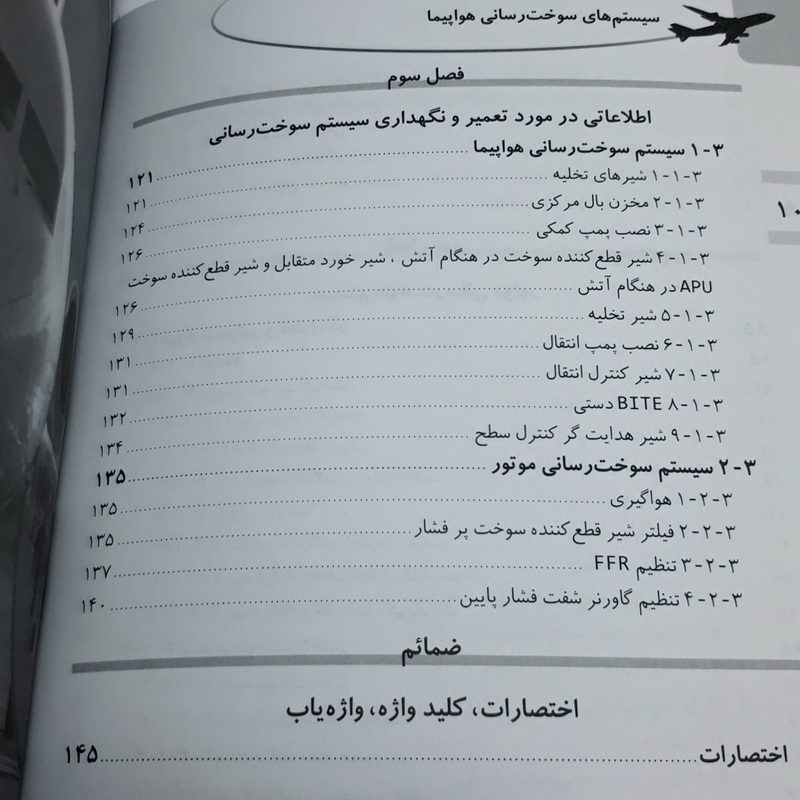 سیستم‌های سوخت‌رسانی هواپیما
فصل سوم
اطلاعاتی در مورد تعمیر و نگهداری سیستم سوخت‌رسانی
۳-۱ سیستم سوخت‌رسانی هواپیما ۱۲۱
۳-۱-۱ شیرهای تخلیه ۱۲۱
۳-۱-۲ مخزن بال مرکزی ۱۲۴
۳-۱-۳ نصب پمپ کمکی ۱۲۶
۳-۱-۴ شیر قطع‌کننده سوخت در هنگام آتش ، شیر خورد متقابل و شیر قطع‌کننده سوخت
APU در هنگام آتش ۱۲۶
۳-۱-۵ شیر تخلیه ۱۲۹
۳-۱-۶ نصب پمپ انتقال ۱۳۱
۳-۱-۷ شیر کنترل انتقال ۱۳۱
۳-۱-۸ BITE دستی ۱۳۲
۳-۱-۹ شیر هدایت گر کنترل سطح ۱۳۴
۳-۲ سیستم سوخت‌رسانی موتور ۱۳۵
۳-۲-۱ هواگیری ۱۳۵
۳-۲-۲ فیلتر شیر قطع‌کننده سوخت پر فشار ۱۳۵
۳-۲-۳ تنظیم FFR ۱۳۷
۳-۲-۴ تنظیم گاورنر شفت فشار پایین ۱۴۰
ضمائم
اختصارات، کلید واژه، واژه‌یاب
اختصارات ۱۴۵